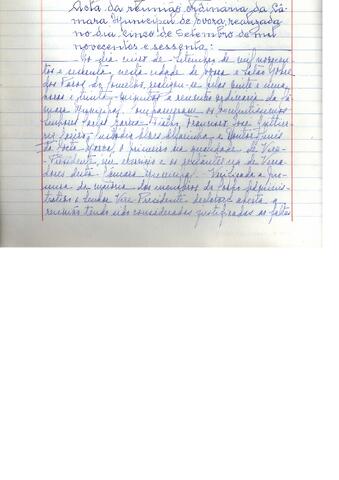 Acta da reunião ordinária da Câ-
mara Municipal de Évora, realizada
no dia cinco de Setembro de mil
novecentos e sessenta:
Ao dia cinco de Setembro de mil novecen-
tos e sessenta, nesta cidade de Évora e salão nobre
dos Paços do Concelho, realizou-se pelas quinze e
horas e trinta minutos a reunião ordinária da Câ-
mara Municipal. Compareceram os
Francisco José
e
da Costa o primeiro na qualidade de Vice-
Presidente em exercício e os restantes na de Verea-
dores desta Câmara Municipal. Verificada a pre-
sença da maioria dos membros do Corpo Adminis-
trativo o Senhor Vice-Presidente declarou aberta a
reunião tendo sido consideradas justificadas as faltas